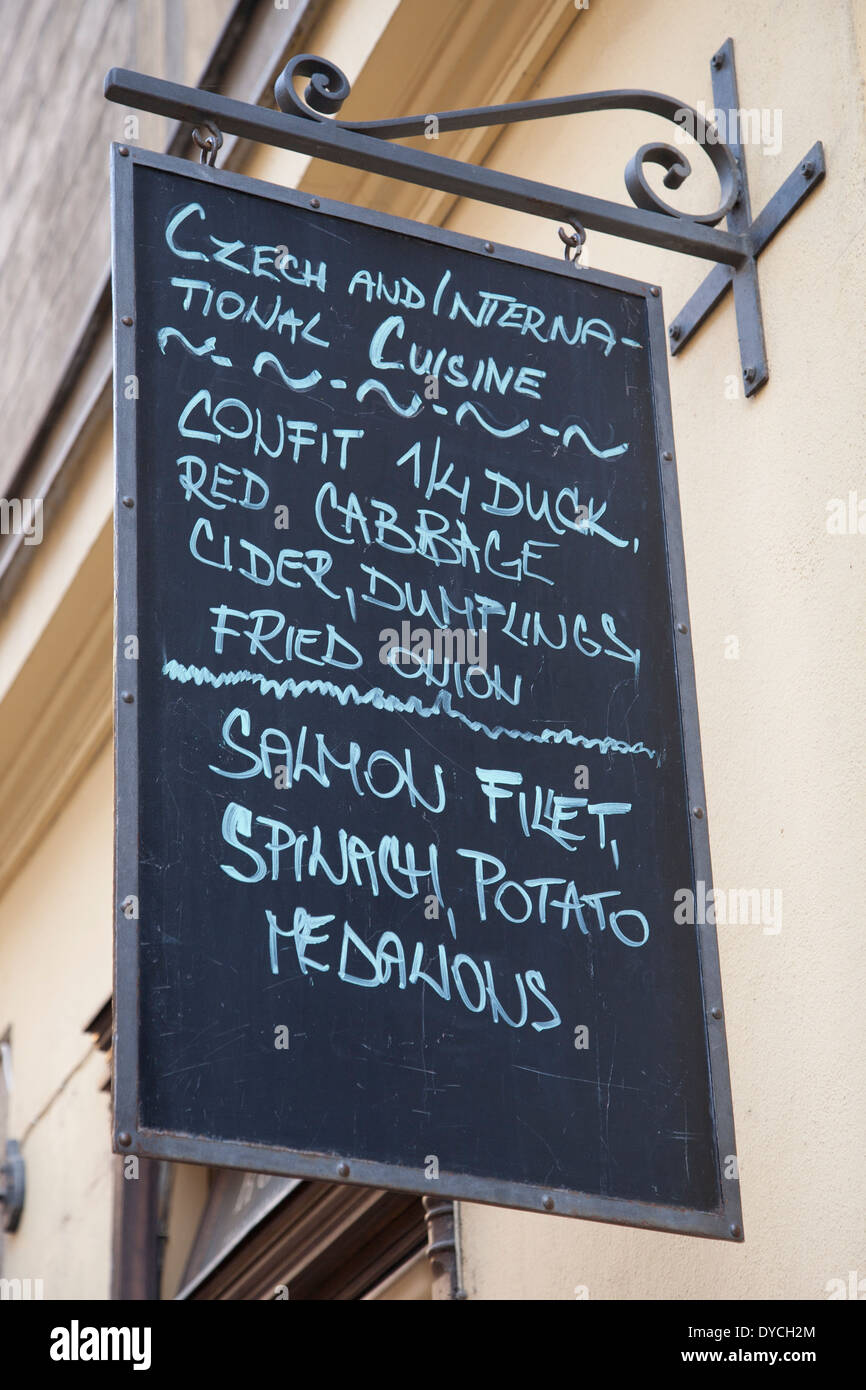 CZECH AND/INTERNA-
TIONAL CUISINE
~-~-~-~-~
CONFIT 1/4 DUCK,
RED CABBAGE
CIDER, DUMPLINGS,
FRIED ONION
SALMON FILLET,
SPINACH, POTATO
MEDALIONS
alamy
Image ID: DYCH2M
www.alamy.com